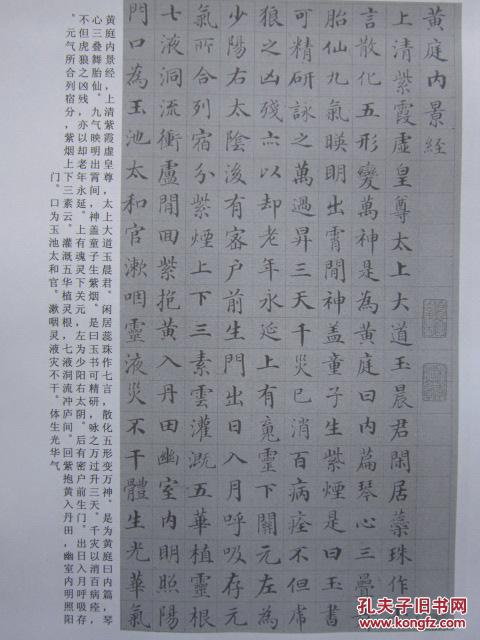 黃庭內景經
上清紫霞虛皇尊太上大道玉晨君閑居蘂珠作
言散化五形變萬神是為黃庭曰內篇琴心三疊
胎仙九氣暎明出霄間神盖童子生紫煙是曰玉書
可精研詠之萬過昇三天千災已消百病痊不但虎
狼之凶殘亦以却老年永延上有䰟靈下關元左為
少陽右太陰後有密户前生門出日入月呼吸存元
氣所合列宿分紫煙上下三素雲灌溉五華植靈根
七液洞流衝盧間回紫抱黃入丹田幽室內明照陽
門口為玉池太和官漱咽靈液災不干體生光華氣
黄庭内景经，上清紫霞虚皇尊，太上大道玉晨君。闲居蕊珠作七言，散化五形变万神。是为黄庭曰内篇，琴
心三叠舞胎仙。九气映明出霄间，神盖童子生紫烟。是曰玉书可精研，咏之万过升三天。千灾以消百病痊，
不但虎狼之凶残，亦以却老年永延。上有魂灵下关元，左为少阳右太阴。后有密户前生门。出日入月呼吸存
。元气所合列宿分，紫烟上下三素云。灌溉五华植灵根，七液洞流冲庐间。回紫抱黄入丹田，幽室内明照阳
门。口为玉池太和官。漱咽灵液灾不干。体生光华气